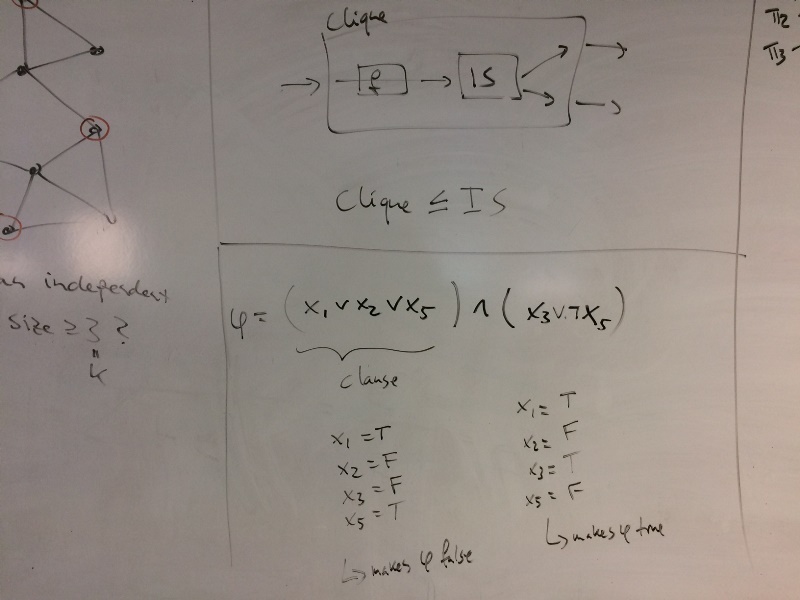 Clique
f
IS
Clique ≤ IS
an independent
size ≥ 3 ?
"
k
φ = (x₁ ∨ x₂ ∨ x₅) ∧ (x₃ ∨ ¬x₅)
clause
x₁ = T
x₂ = F
x₃ = F
x₅ = T
↳ makes φ false
x₁ = T
x₂ = F
x₃ = T
x₅ = F
↳ makes φ true
π₂
π₃